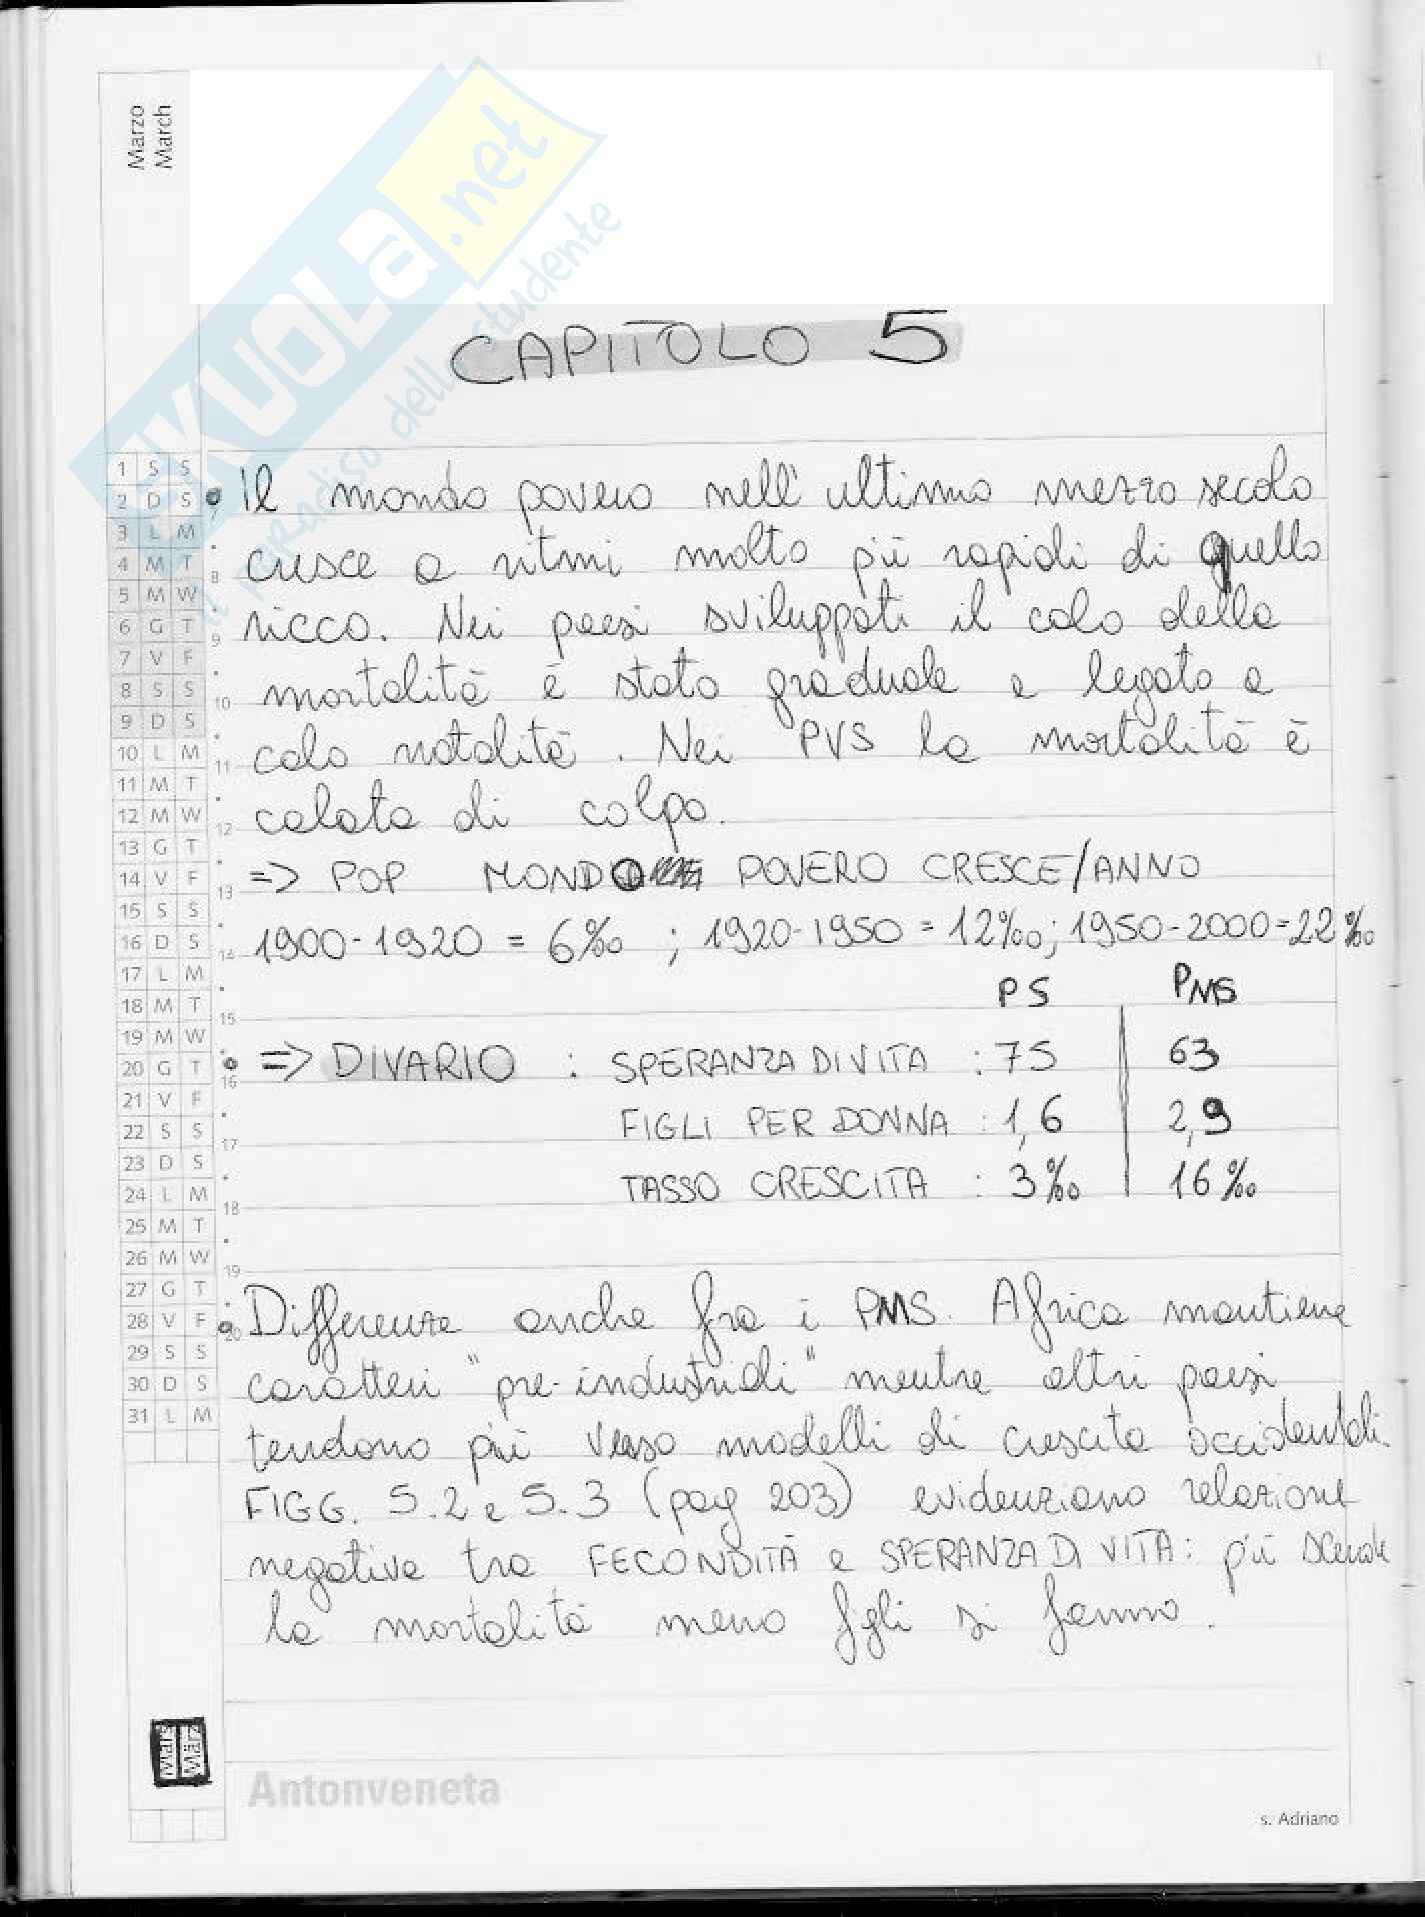 Marzo
March
SKUOLA.net
il paradiso dello studente
CAPITOLO 5
1 S S
2 D S
3 L M
4 M T
5 M W
6 G T
7 V F
8 S S
9 D S
10 L M
11 M T
12 M W
13 G T
14 V F
15 S S
16 D S
17 L M
18 M T
19 M W
20 G T
21 V F
22 S S
23 D S
24 L M
25 M T
26 M W
27 G T
28 V F
29 S S
30 D S
31 L M
7
8
9
10
11
12
13
14
15
16
17
18
19
20
Il mondo povero nell'ultimo mezzo secolo
cresce a ritmi molto più rapidi di quello
ricco. Nei paesi sviluppati il calo della
mortalità è stato graduale e legato a
calo natalità. Nei PVS la mortalità è
calata di colpo.
=> POP MONDO POVERO CRESCE/ANNO
1900-1920 = 6‰ ; 1920-1950 = 12‰; 1950-2000=22‰
PS PMS
=> DIVARIO : SPERANZA DI VITA : 75 63
FIGLI PER DONNA : 1,6 2,9
TASSO CRESCITA : 3‰ 16‰
Differenze anche fra i PMS. Africa mantiene
caratteri "pre-industriali" mentre altri paesi
tendono più verso modelli di crescita occidentali.
FIGG. 5.2 e 5.3 (pag 203) evidenziano relazione
negativa tra FECONDITÀ e SPERANZA DI VITA: più scende
la mortalità meno figli si fanno.
Mars
März
Antonveneta
s. Adriano